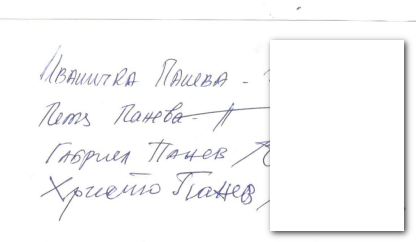 Иваничка Панева -
Петя Панева -
Габриел Панев
Христо Панев